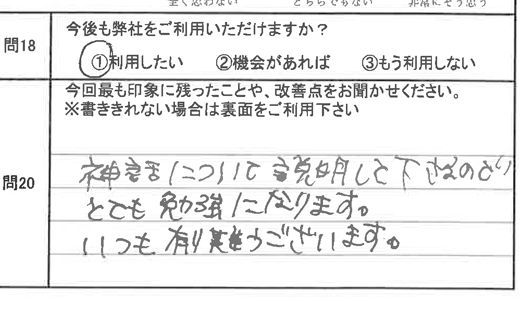 全く思わない どちらでもない 非常にそう思う
問18
今後も弊社をご利用いただけますか？
①利用したい ②機会があれば ③もう利用しない
問20
今回最も印象に残ったことや、改善点をお聞かせください。
※書ききれない場合は裏面をご利用下さい
神話について説明して下さるので
とても勉強になります。
いつも有り難うございます。